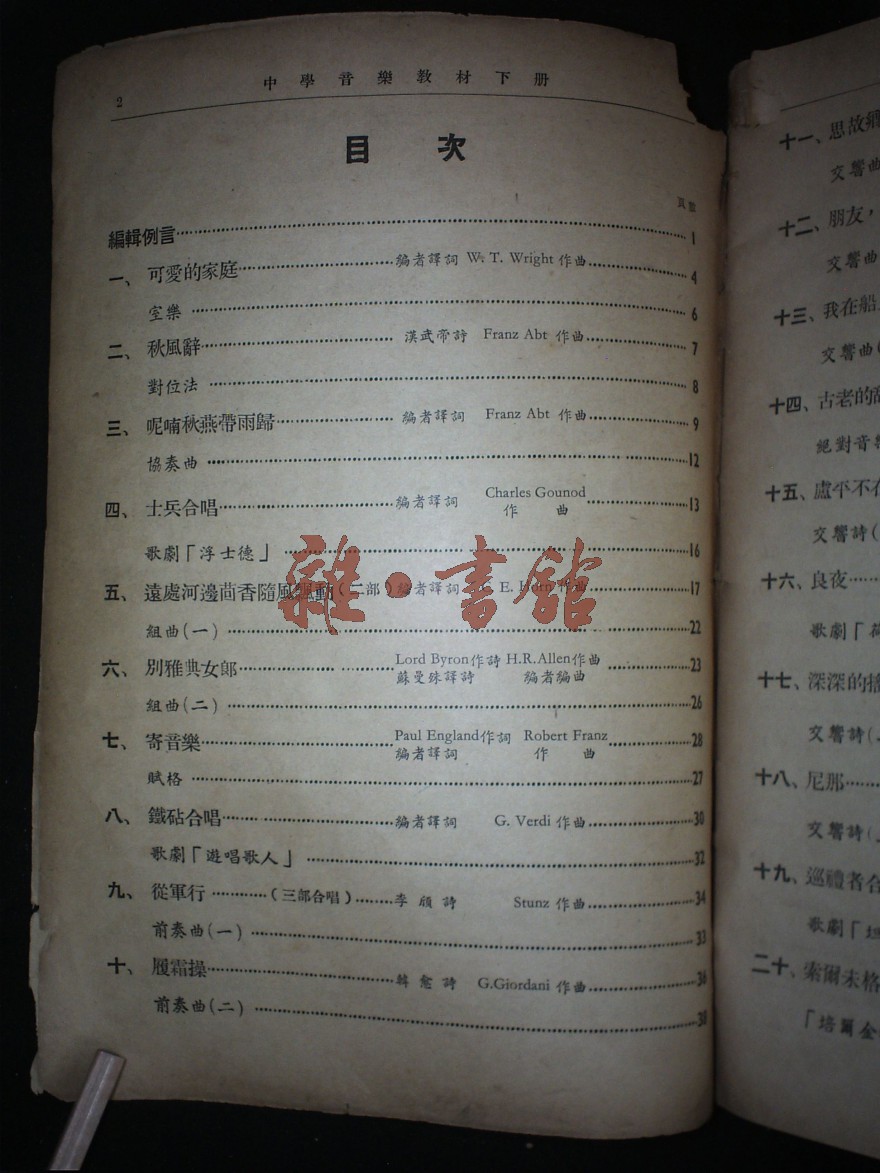 2
中學音樂教材下册
目 次
頁數
編輯例言 1
一、可愛的家庭 編者譯詞 W. T. Wright 作曲 4
室樂 6
二、秋風辭 漢武帝詩 Franz Abt 作曲 7
對位法 8
三、呢喃秋燕帶雨歸 編者譯詞 Franz Abt 作曲 9
協奏曲 12
四、士兵合唱 編者譯詞 Charles Gounod 作曲 13
歌劇「浮士德」 16
五、遠處河邊茴香隨風飄動(二部) 編者譯詞 E. Horn 作曲 17
組曲(一) 22
六、別雅典女郎 Lord Byron作詩 H.R.Allen作曲 23
蘇曼殊譯詩 編者編曲
組曲(二) 26
七、寄音樂 Paul England作詞 Robert Franz 28
編者譯詞 作曲
賦格 27
八、鐵砧合唱 編者譯詞 G. Verdi 作曲 30
歌劇「遊唱歌人」 32
九、從軍行 (三部合唱) 李頎詩 Stunz 作曲 34
前奏曲(一) 33
十、履霜操 韓愈詩 G.Giordani 作曲 36
前奏曲(二) 38
雜·書館
十一、思故鄉
交響曲
十二、朋友，
交響曲
十三、我在船
交響曲(
十四、古老的
絕對音樂
十五、盧平不在
交響詩(
十六、良夜
歌劇「
十七、深深的
交響詩(
十八、尼那
交響詩(
十九、巡禮者合
歌劇「
二十、索爾未格
「培爾金